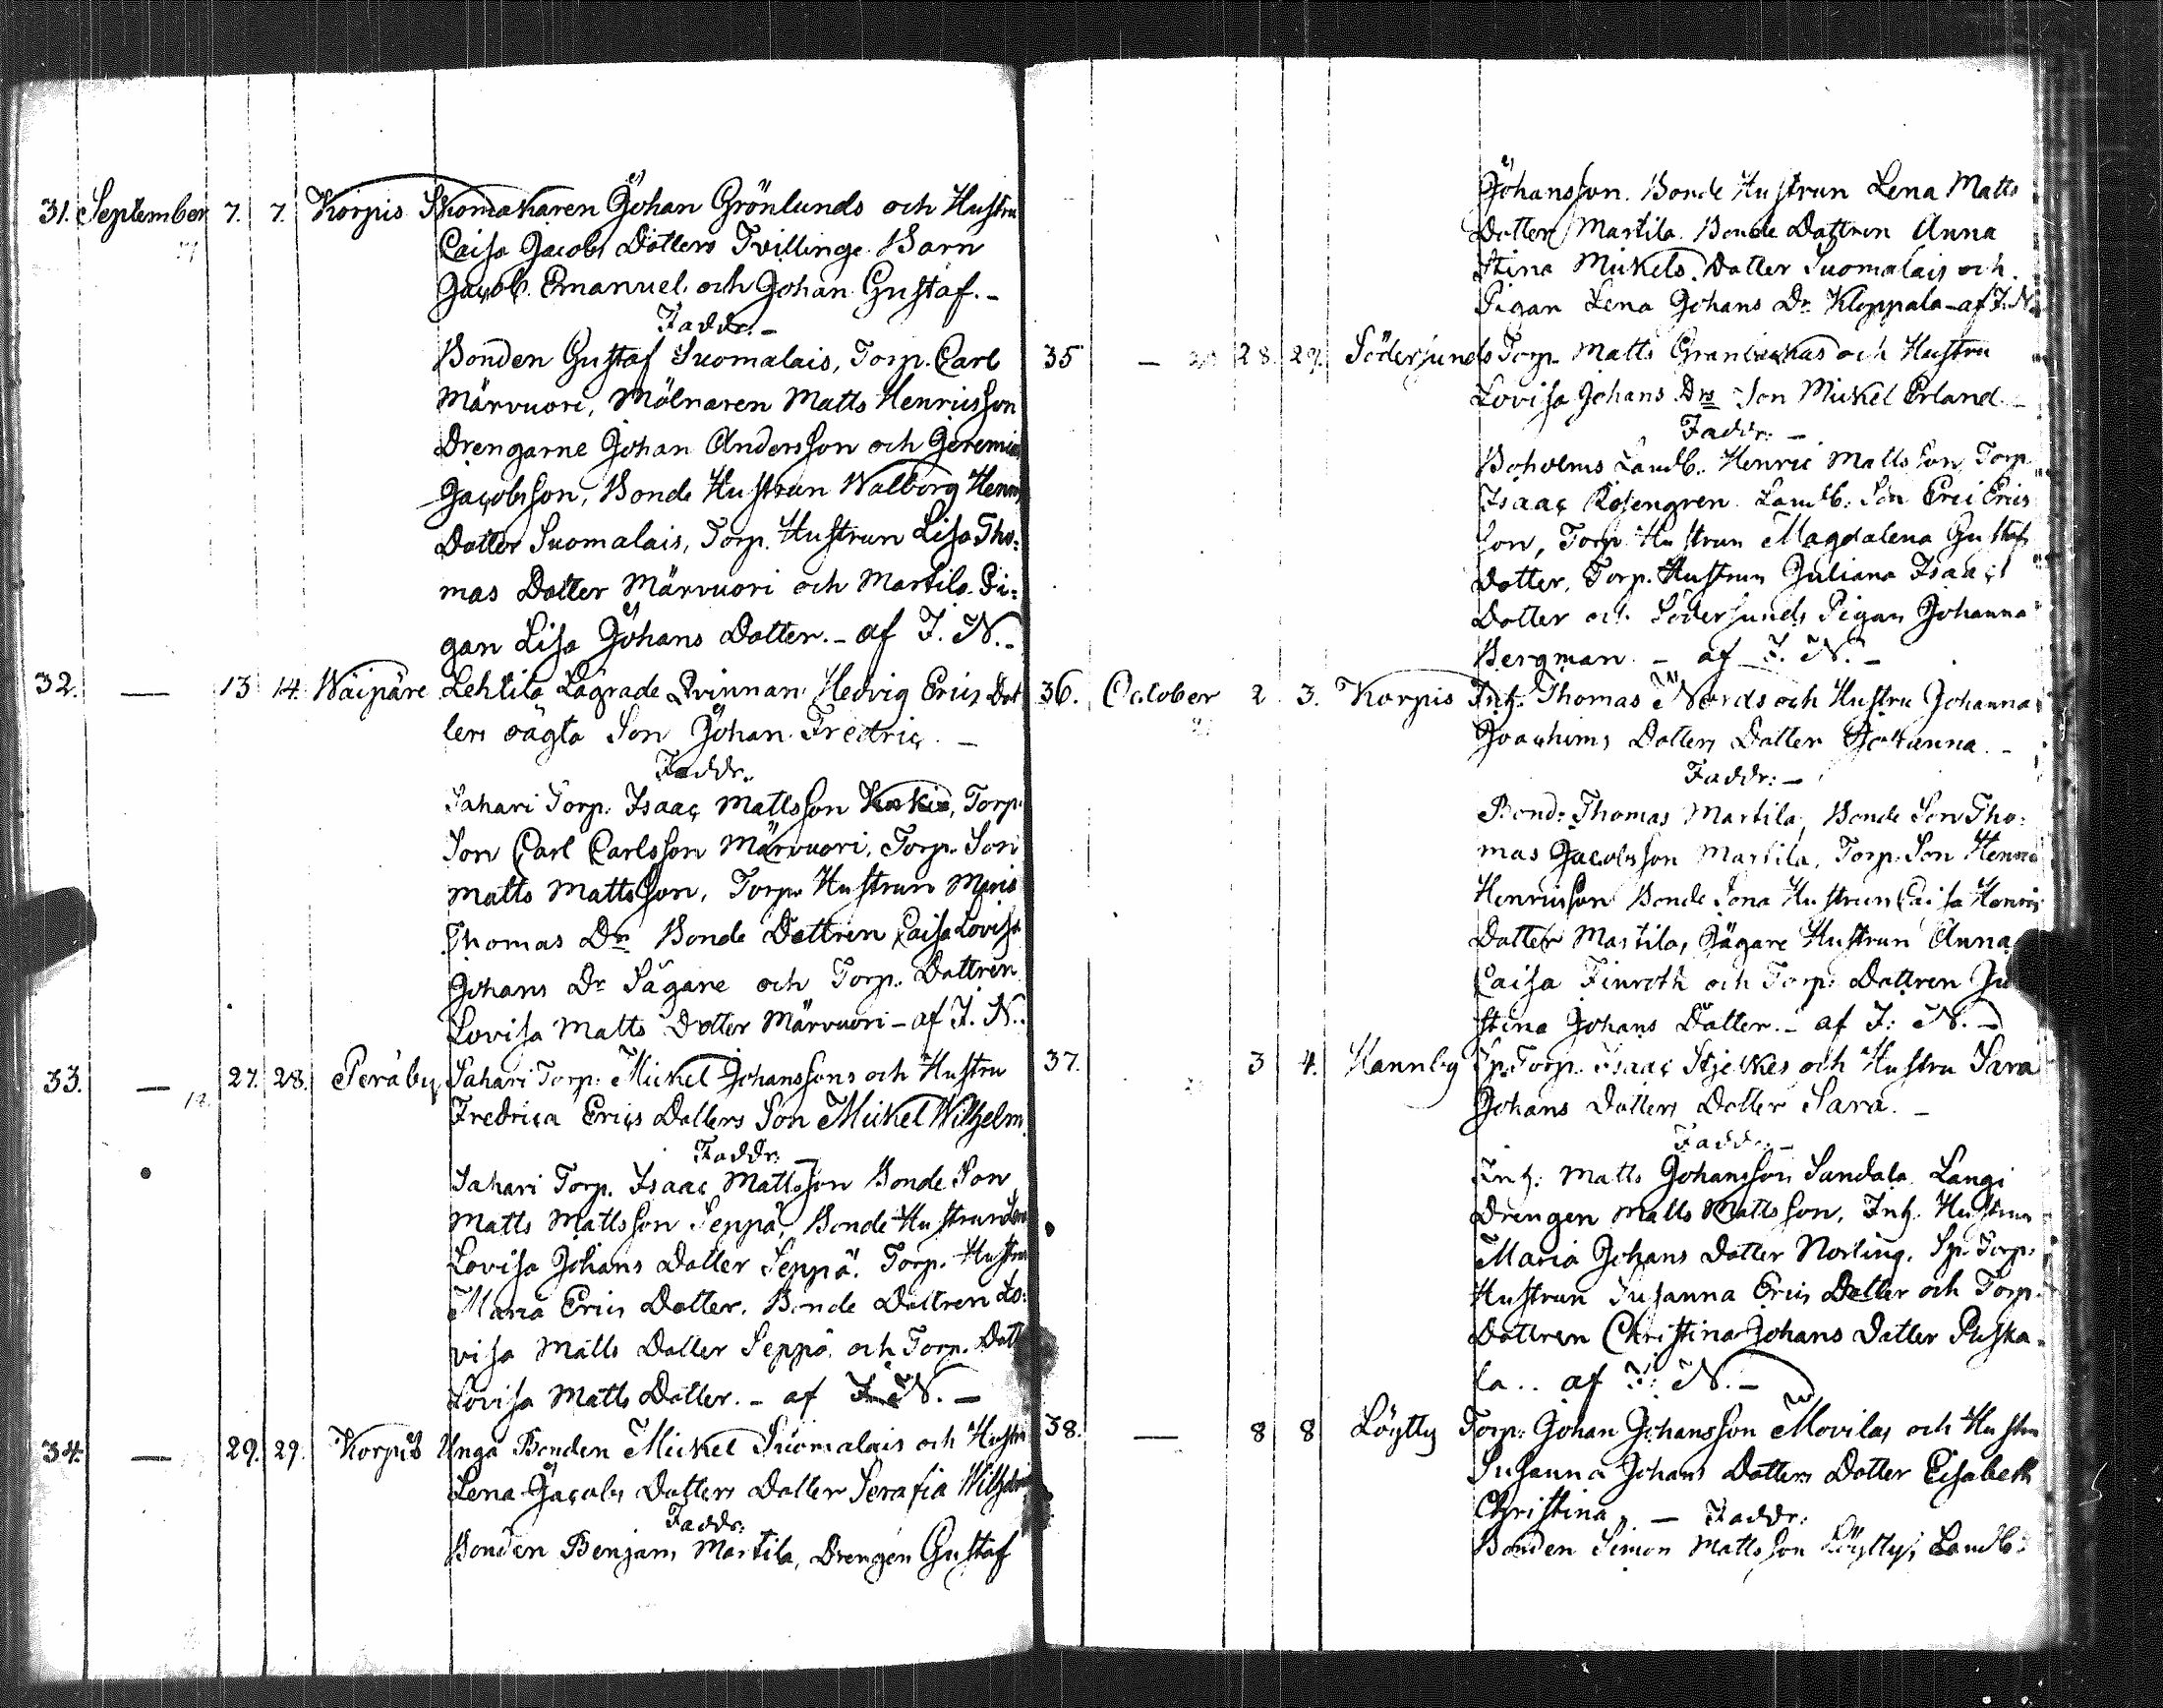 31. September 7. 7. Korpis Skomakaren Johan Grönlunds och Hustru
Caisa Jacobs Dotters Tvillinge Barn
Jacob Emanuel och Johan Gustaf. -
Faddr. -
Bonden Gustaf Suomalais, Torp. Carl
Märvuori, Mölnaren Matts Henricsson
Drengarne Johan Andersson och Jeremias
Jacobsson, Bonde Hustrun Walborg Henrics
Dotter Suomalais, Torp. Hustrun Lisa Tho:
mas Dotter Märvuori och Martila Pi:
gan Lisa Johans Dotter. - af J. N. -
32. — 13 14. Waipäre Lehtila Lägrade Qvinnan Hedvig Erics Dot
ters oägta Son Johan Fredric. -
Faddr.
Sahari Torp. Isaac Mattsson, Torp.
Son Carl Carlsson Märvuori, Torp. Son
Matts Mattsson, Torp. Hustrun Maria
Thomas Dr Bonde Dottren Caisa Lovisa
Johans Dr Sägare och Torp. Dottren
Lovisa Matts Dotter Märvuori - af J. N.
33. — 27. 28. Peräby Sahari Torp. Mickel Johanssons och Hustru
Fredrica Erics Dotters Son Mickel Wilhelm.
Faddr: -
Sahari Torp. Isaac Mattsson Bonde Son
Matts Mattsson Seppä, Bonde Hustrun
Lovisa Johans Dotter Seppä. Torp. Hustru
Maria Erics Dotter. Bonde Dottren Lo:
visa Matts Dotter Seppä och Torp. Dott
Lovisa Matts Dotter. - af J. N. -
34. — 29. 29. Korpis Unga Bonden Mickel Suomalais och Hustru
Lena Jacobs Dotters Dotter Serafia Wilhelmi
Faddr:
Bonden Benjam Martila, Drengen Gustaf
Johansson. Bonde Hustrun Lena Matts
Dotter Martila. Bonde Dottren Anna
Stina Mickels Dotter Suomalais och
Pigan Lena Johans Dr Kloppala - af J. N.
35 — 28. 29. Södersunds Torp. Matts och Hustru
Lovisa Johans Drs Son Mickel Erland. -
Faddr: -
Boholms Landb. Henric Mattsson, Torp
Isaac Rosengren. Landb: Son Eric Erics
son, Torp. Hustrun Magdalena Gustafs
Dotter, Torp. Hustrun Juliana Isaacs
Dotter och Södersunds Pigan Johanna
Bergman. - af J. N. -
36. October 2 3. Korpis Inh. Thomas Nords och Hustru Johanna
Joachims Dotters Dotter Johanna. -
Faddr: -
Bond: Thomas Martila, Bonde Son Tho:
mas Jacobsson Martila, Torp. Son Henric
Henricsson Bonde Sona Hustrun Caisa Henrics
Dotter Martila, Sägare Hustrun Anna
Caisa Finroth och Torp: Dottren Ju
stina Johans Dotter. - af J: N. -
37. 3 4. Hannby Sp. Torp. Isaac Stjelkes och Hustru Sara
Johans Dotters Dotter Sara. -
Faddr: -
Inh: Matts Johansson Sandala. Langi
Drengen Matts Mattsson, Inh. Hustrun
Maria Johans Dotter Norling. Sp. Torp:
Hustrun Susanna Erics Dotter och Torp.
Dottren Christina Johans Dotter Puska-
la.. af J: N. -
38. — 8 8 Löytty Torp: Johan Johansson Movilas och Hustru
Susanna Johans Dotters Dotter Elisabeth
Christina. - Faddr:
Bonden Simon Mattsson Löytty, Landb: